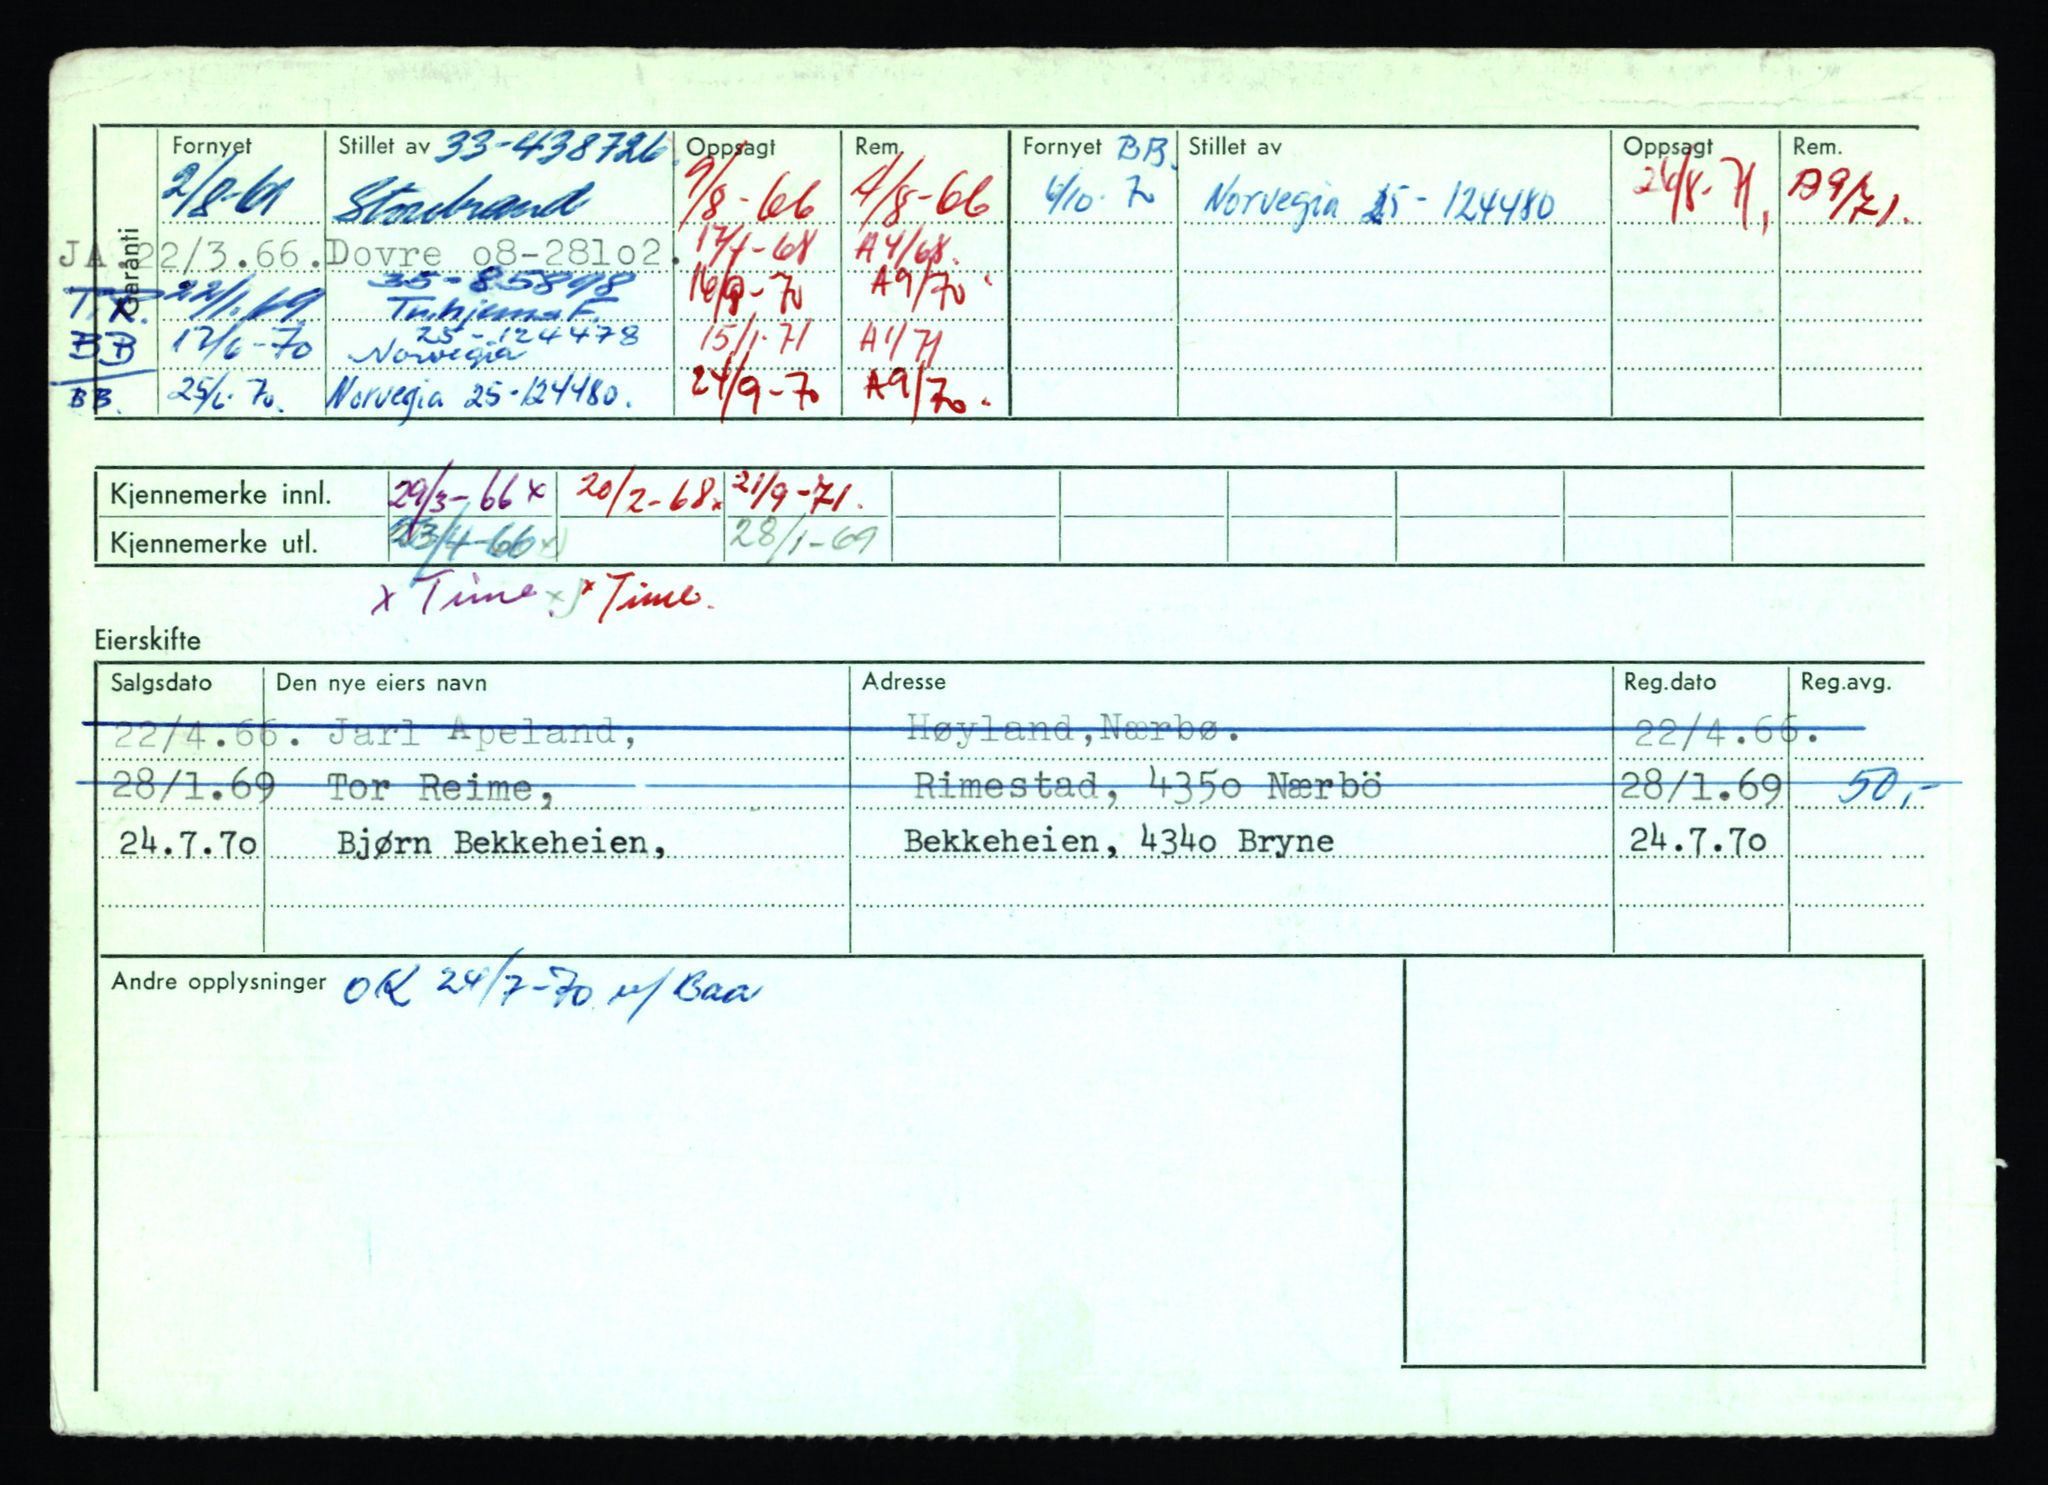 Garanti
Fornyet Stillet av 33-438726. Oppsagt Rem. Fornyet BB. Stillet av Oppsagt Rem.
2/8-61 Storebrand 9/8-66 4/8-66 6/10-70 Norvegia 25-124480 26/8-71, A9/71.
JA. 22/3.66. Dovre o8-281o2. 17/4-68 A4/68.
35-85898
T.R. 22/1.69 Tr.hjems F. 16/9-70 A9/70.
25-124478
BB 17/6-70 Norvegia 15/1-71 A1/71
BB. 25/6-70. Norvegia 25-124480. 24/9-70 A9/70.
Kjennemerke innl. 29/3-66 x 20/2-68x 21/9-71.
Kjennemerke utl. 23/4-66 x) 28/1-69
x Time x) x Time.
Eierskifte
Salgsdato Den nye eiers navn Adresse Reg.dato Reg.avg.
22/4.66. Jarl Apeland, Høyland,Nærbø. 22/4.66.
28/1.69 Tor Reime, Rimestad, 435o Nærbö 28/1.69 50,-
24.7.7o Bjørn Bekkeheien, Bekkeheien, 434o Bryne 24.7.7o
Andre opplysninger OK 24/7-70 m/ Baa